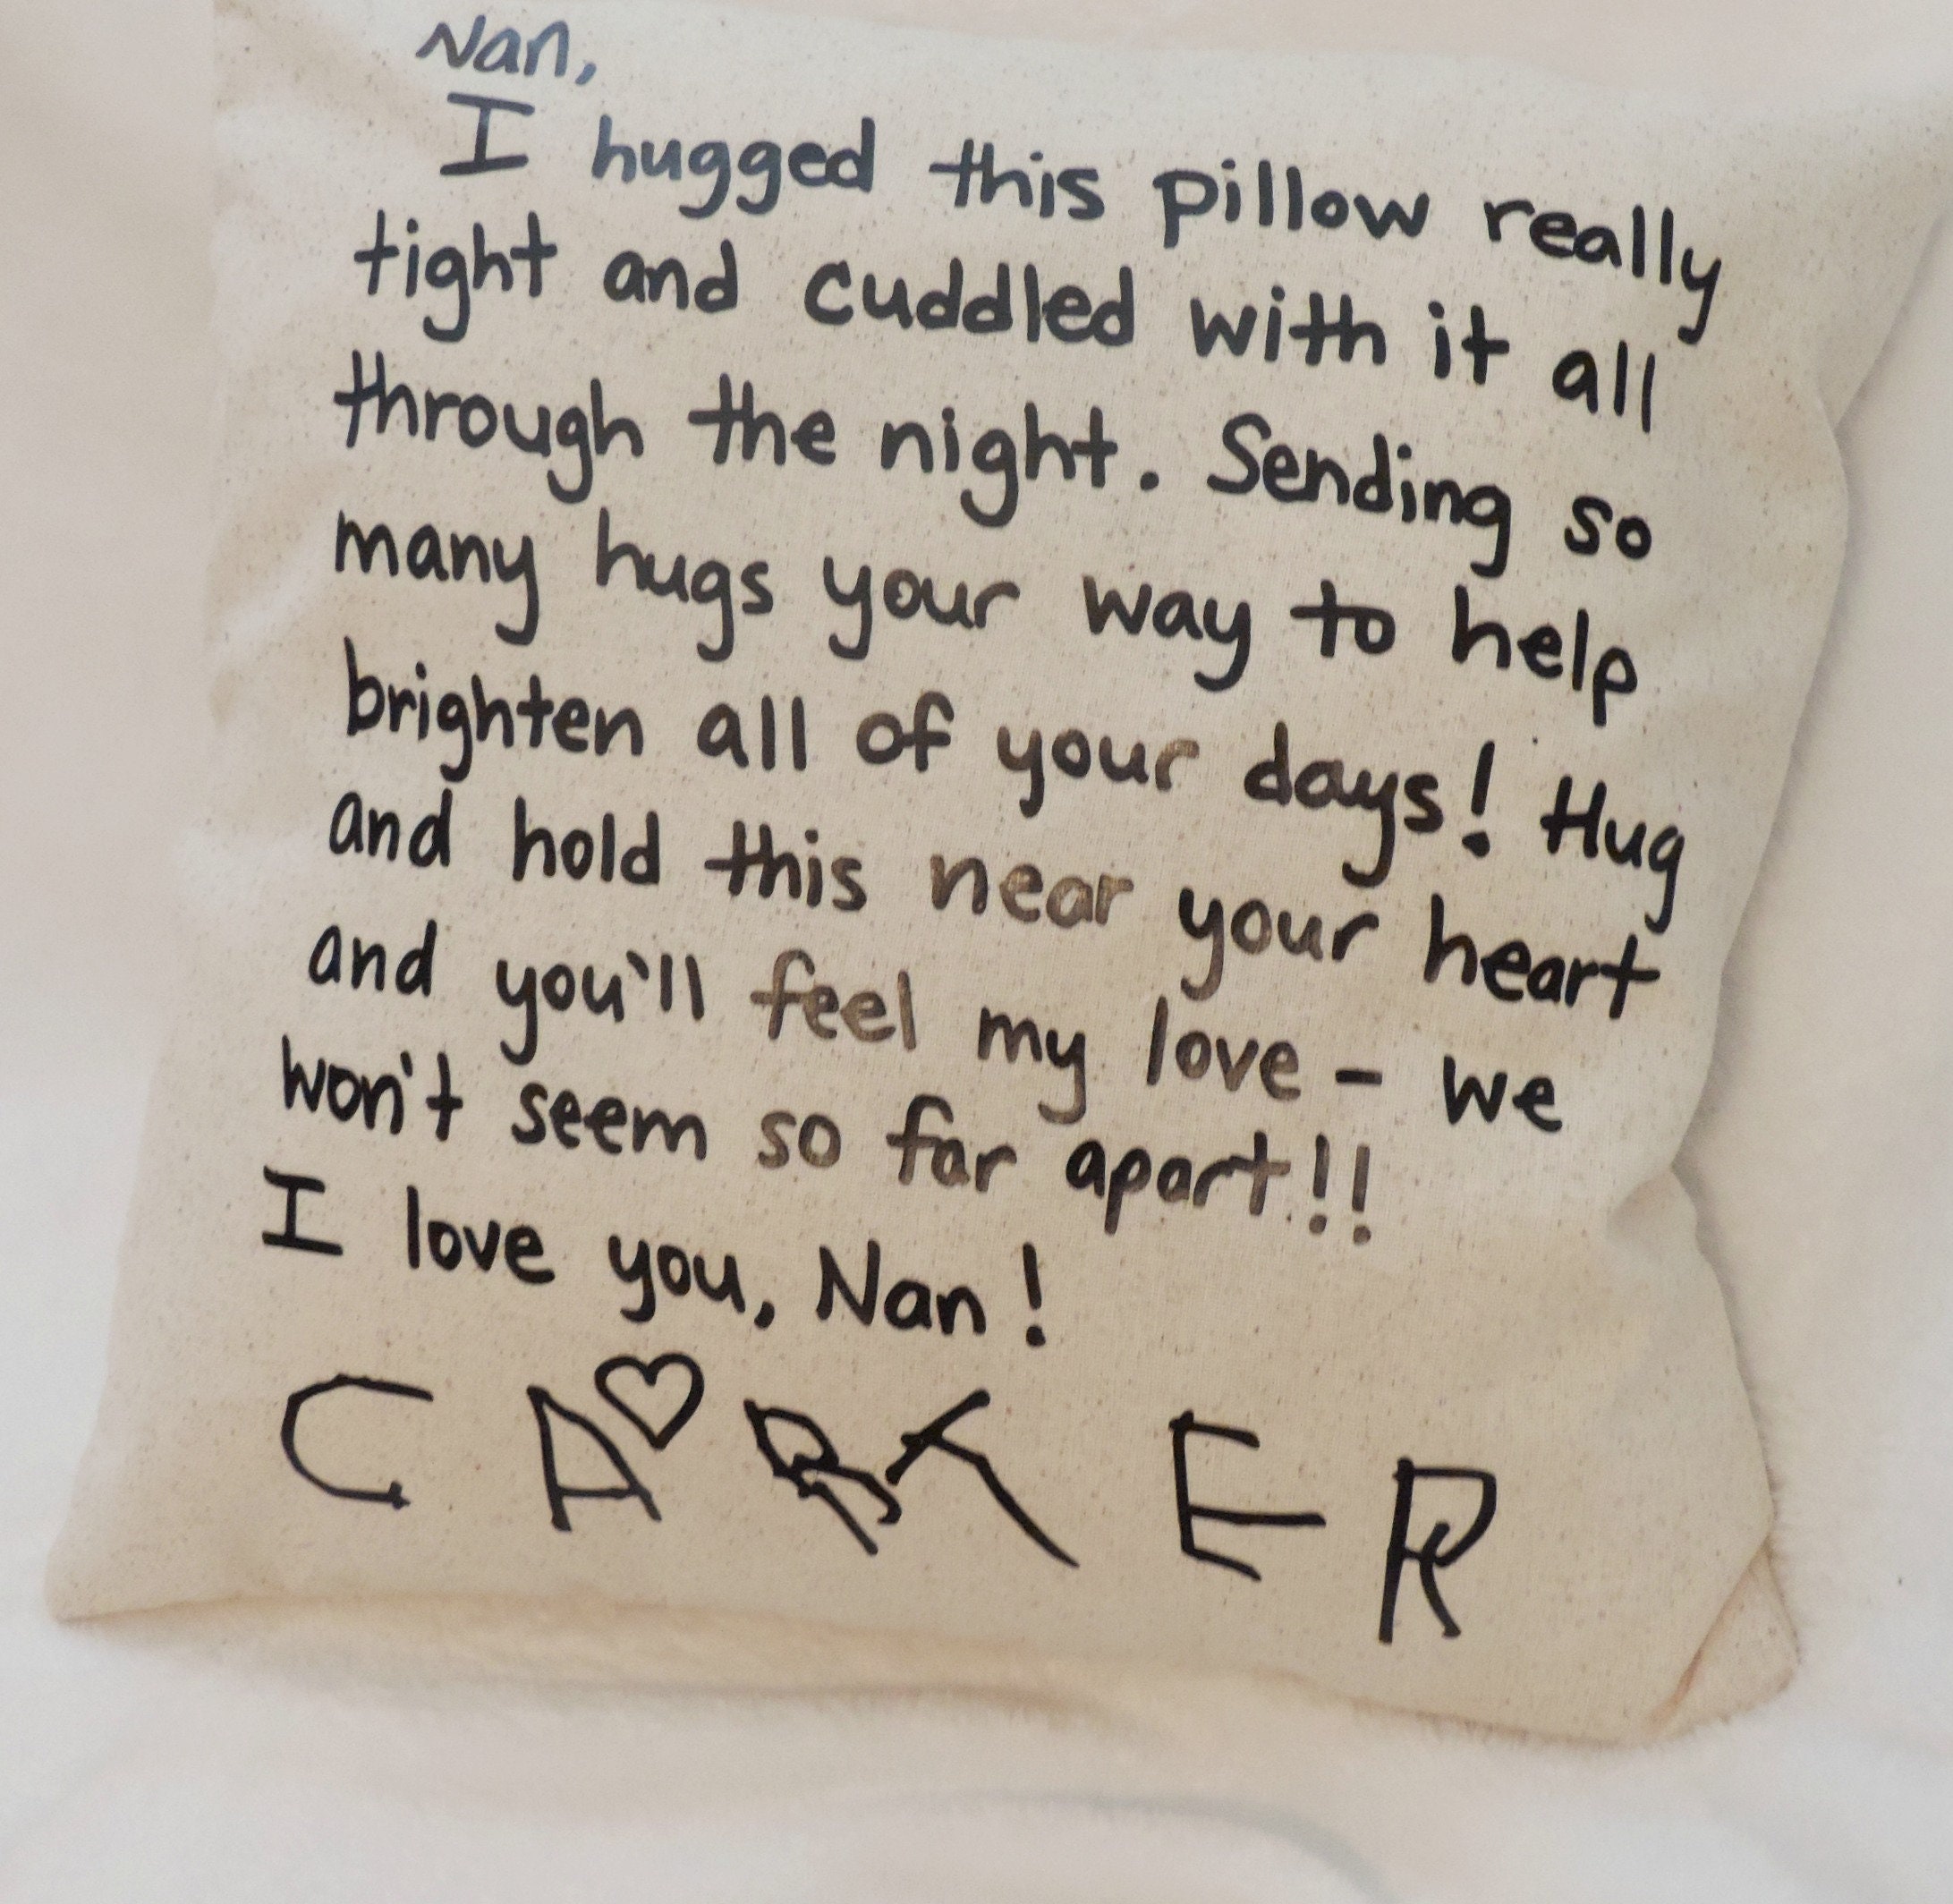 Nan,
I hugged this pillow really
tight and cuddled with it all
through the night. Sending so
many hugs your way to help
brighten all of your days! Hug
and hold this near your heart
and you'll feel my love - we
won't seem so far apart!!
I love you, Nan!
CARTER